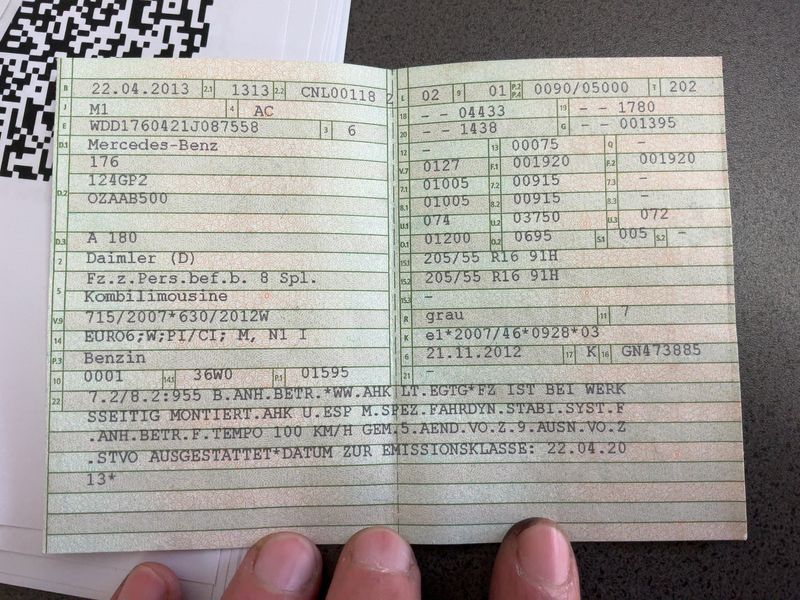 B 22.04.2013 2.1 1313 2.2 CNL00118 2
J M1 4 AC
E WDD1760421J087558 3 6
D.1 Mercedes-Benz
176
D.2 124GP2
OZAAB500
D.3 A 180
2 Daimler (D)
5 Fz.z.Pers.bef.b. 8 Spl.
Kombilimousine
V.9 715/2007*630/2012W
14 EURO6;W;PI/CI; M, N1 I
P.3 Benzin
10 0001 14.1 36W0 P.1 01595
L 02 9 01 P.2 P.4 0090/05000 T 202
18 - - 04433 19 - - 1780
20 - - 1438 G - - 001395
12 - 13 00075 Q -
V.7 0127 F.1 001920 F.2 001920
7.1 01005 7.2 00915 7.3 -
8.1 01005 8.2 00915 8.3 -
U.1 074 U.2 03750 U.3 072
O.1 01200 O.2 0695 S.1 005 S.2 -
15.1 205/55 R16 91H
15.2 205/55 R16 91H
15.3 -
R grau 11 7
K e1*2007/46*0928*03
6 21.11.2012 17 K 16 GN473885
21 -
22 7.2/8.2:955 B.ANH.BETR.*WW.AHK LT.EGTG*FZ IST BEI WERK
SSEITIG MONTIERT.AHK U.ESP M.SPEZ.FAHRDYN.STABI.SYST.F
.ANH.BETR.F.TEMPO 100 KM/H GEM.5.AEND.VO.Z.9.AUSN.VO.Z
.STVO AUSGESTATTET*DATUM ZUR EMISSIONSKLASSE: 22.04.20
13*